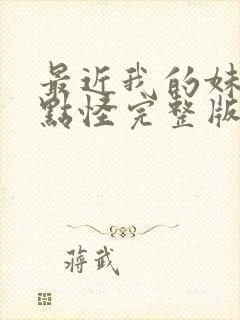 最近我的妹
點怪完整版
蔣武